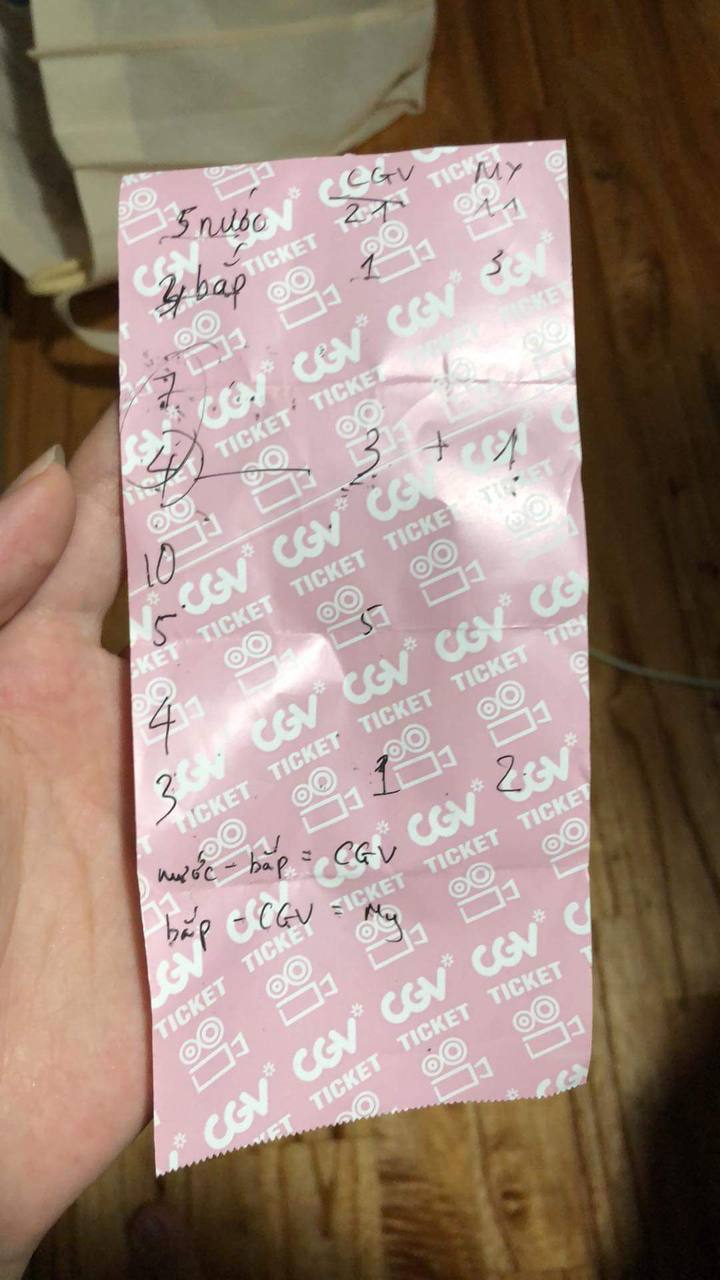 CGV My
5 nước 21 11
bắp 1 3
7
4 3 + 1
10
5 5
4
3 1 2
nước - bắp = CGV
bắp - CGV = My
CGV TICKET